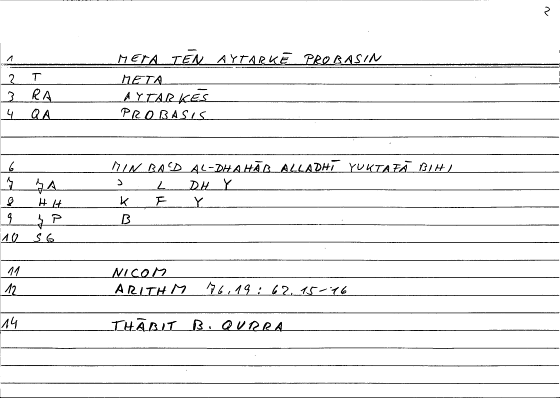 2
1 META TĒN AYTARKĒ PROBASIN
2 T META
3 RA AYTARKĒS
4 QA PROBASIS
6 MIN BAʿD AL-DHAHĀB ALLADHĪ YUKTAFĀ BIHI
7 ʒA ɔ L DH Y
8 HH K F Y
9 ʒP B
10 SG
11 NICOM
12 ARITHM 76.19 : 62.15-16
14 THĀBIT B. QURRA